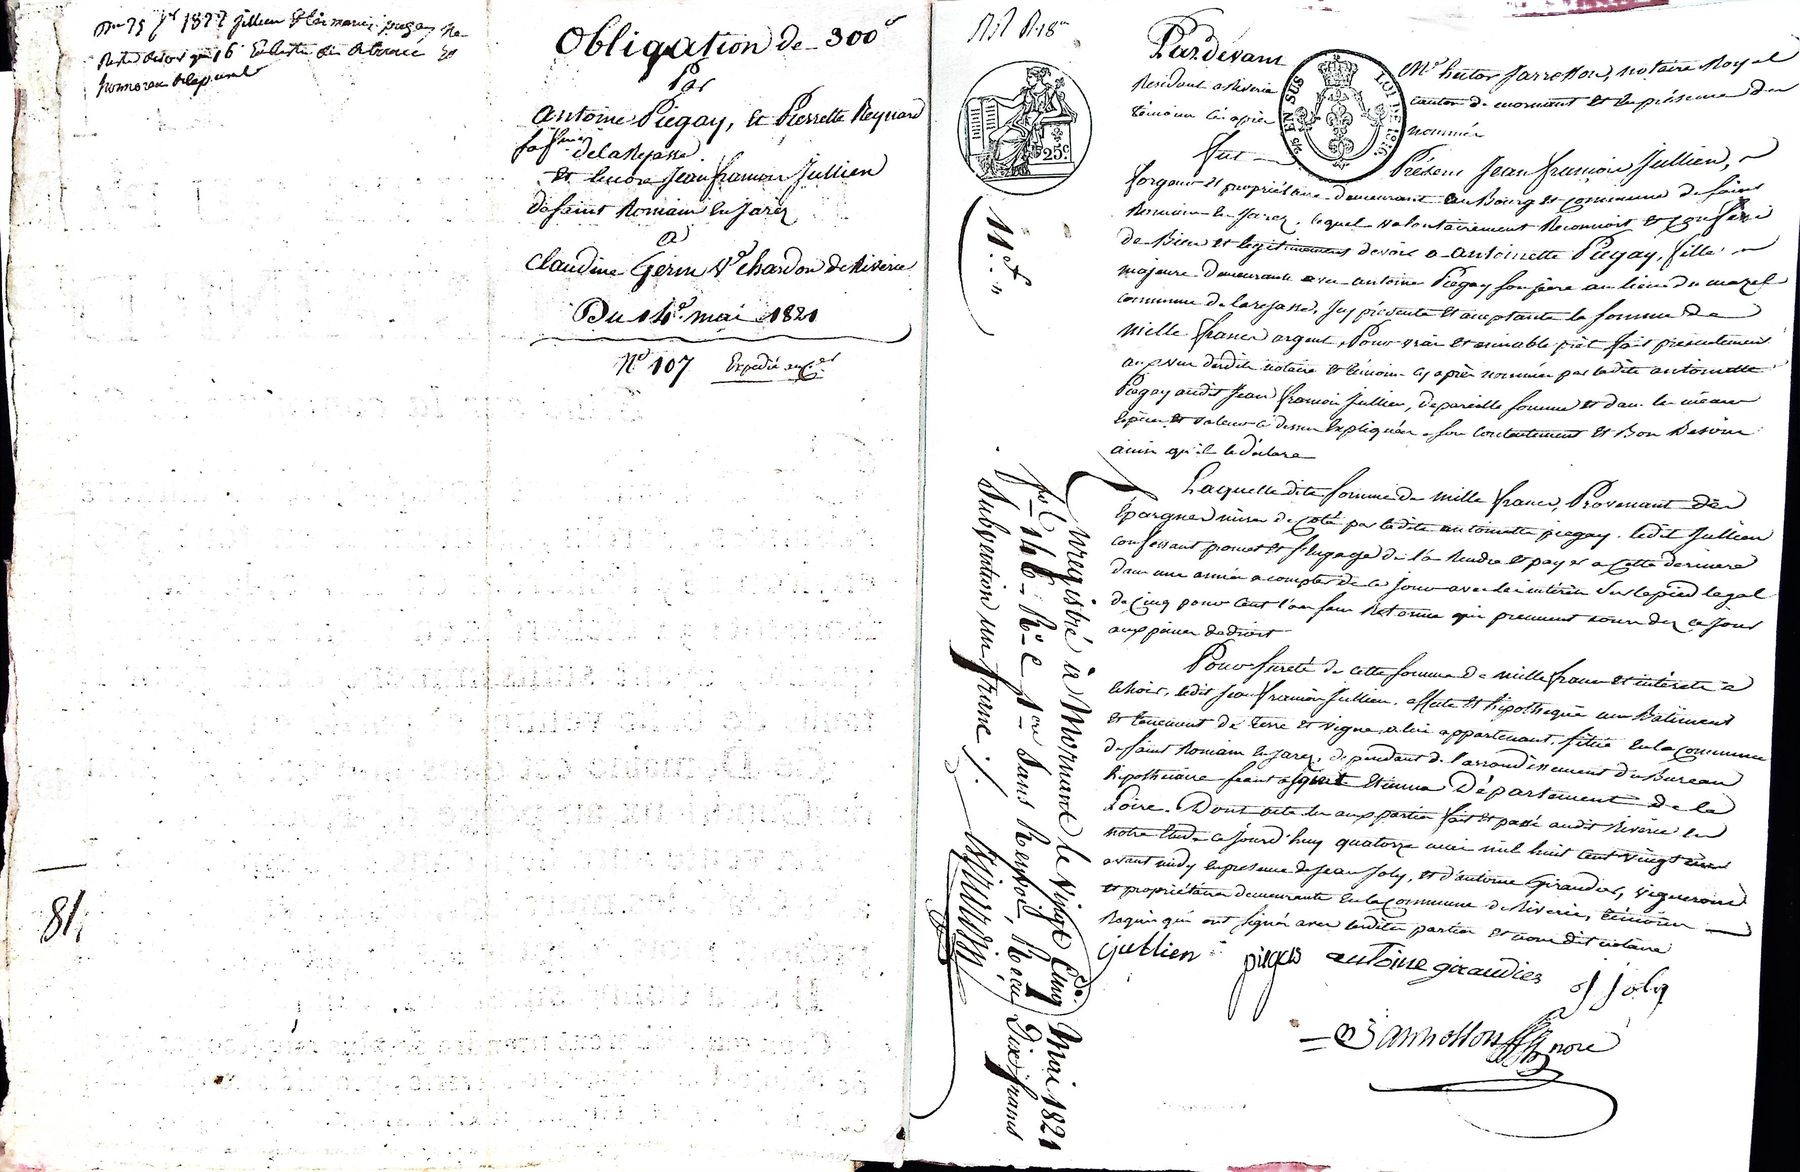 Obligation de 300
Par
Antoine Piegay, et Pierrette Reynard
sa
de Larajasse
et encore Jean françois Jullien
de Saint Romain en Jarez
à
Claudine Gerin Ve chardon de Riverie
Du 14e mai 1821
No 107 Expédié
81
Pardevant Me hector Jannesson, notaire Royal
Résidant a Riverie canton de mornant et en présence des
témoins ci après nommés
EN SUS
25c
11
fut Présent Jean françois Jullien,
forgeur et propriétaire demeurant au Bourg et commune de saint
Romain en Jarez, lequel volontairement Reconnoit et confesse
de Bien et legitimement devoir a antoinette Piegay, fille
majeure demeurante avec antoine Piegay son père au lieu du mazel
commune de larajasse, icy présente et acceptante la somme de
mille francs argent, Pour vrai et amiable prêt fait présentement
au vu desdits notaire et témoins cy après nommés par ladite antoinette
Piegay audit Jean françois Jullien, de pareille somme et dans les mêmes
espèces et valeurs ci dessus expliquées a son contentement et Bon Besoin
ainsi qu'il le déclare
Laquelle dite somme de mille francs, Provenant des
épargnes mises de Coté par ladite antoinette piegay. ledit Jullien
confessant promet et s'engage de la Rendre et payer a cette derniere
dans une année a compter de ce jour avec les intérêts sur le pied legal
de cinq pour cent l'an sans Retenue qui prennent cours dez ce jour
aux peines de droit
Pour sureté de cette somme de mille francs et intérêts à
échoir, ledit jean françois Jullien, affecte et hipotheque un Bâtiment
et tenement de terre et vigne, a lui appartenant, situé en la commune
de saint Romain en Jarez, dependant de l'arrondissement du Bureau
hipothécaire séant a saint Etienne Département de la
Loire. Dont acte aux parties fait et passé audit Riverie en
notre étude ce jourd'huy quatorze mai mil huit cent vingt un
avant midy en présence de Jean Joly, et d'antoine Giraudier, vignerons
et propriétaires demeurants en la commune de Riverie, témoins
Requis qui ont signés avec lesdites parties et nous dit notaire
jullien piegay antoine giraudier j joly
Jannesson nore
Enregistré à Mornant le vingt Cinq Mai 1821
fo 146 Ro C 1ere Sans Renvoi, Reçu Dix francs
Subvention un franc